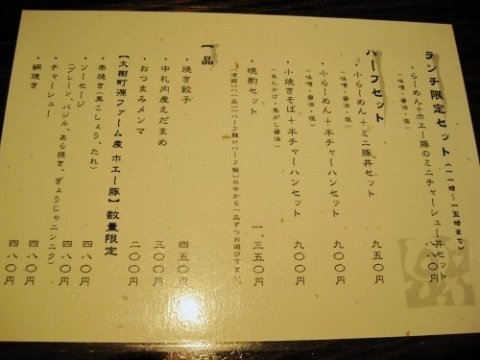 ランチ限定セット(一一時〜一五時まで)
・らーめん＋ホエー豚のミニチャーシュー丼セット
(味噌・醤油・塩)
八〇円
ハーフセット
・小らーめん＋ミニ豚丼セット 九五〇円
(味噌・醤油・塩)
・小らーめん＋半チャーハンセット 九〇〇円
(味噌・醤油・塩)
・小焼きそば＋半チャーハンセット 九〇〇円
(あんかけ・焦がし醤油)
・晩酌セット 一、三五〇円
(酒類)(一品)(ハーフ麺かハーフ飯)の中から一品ずつお選び下さい。
一品
・焼き餃子 四五〇円
・中札内産えだまめ 三〇〇円
・おつまみメンマ 二〇〇円
【大樹町源ファーム産 ホエー豚】数量限定
・串焼き(黒こしょう、たれ) 四八〇円
・ソーセージ 四八〇円
(プレーン、バジル、あら挽き、ぎょうじゃニンニク)
・チャーシュー 四八〇円
・網焼き 四八〇円